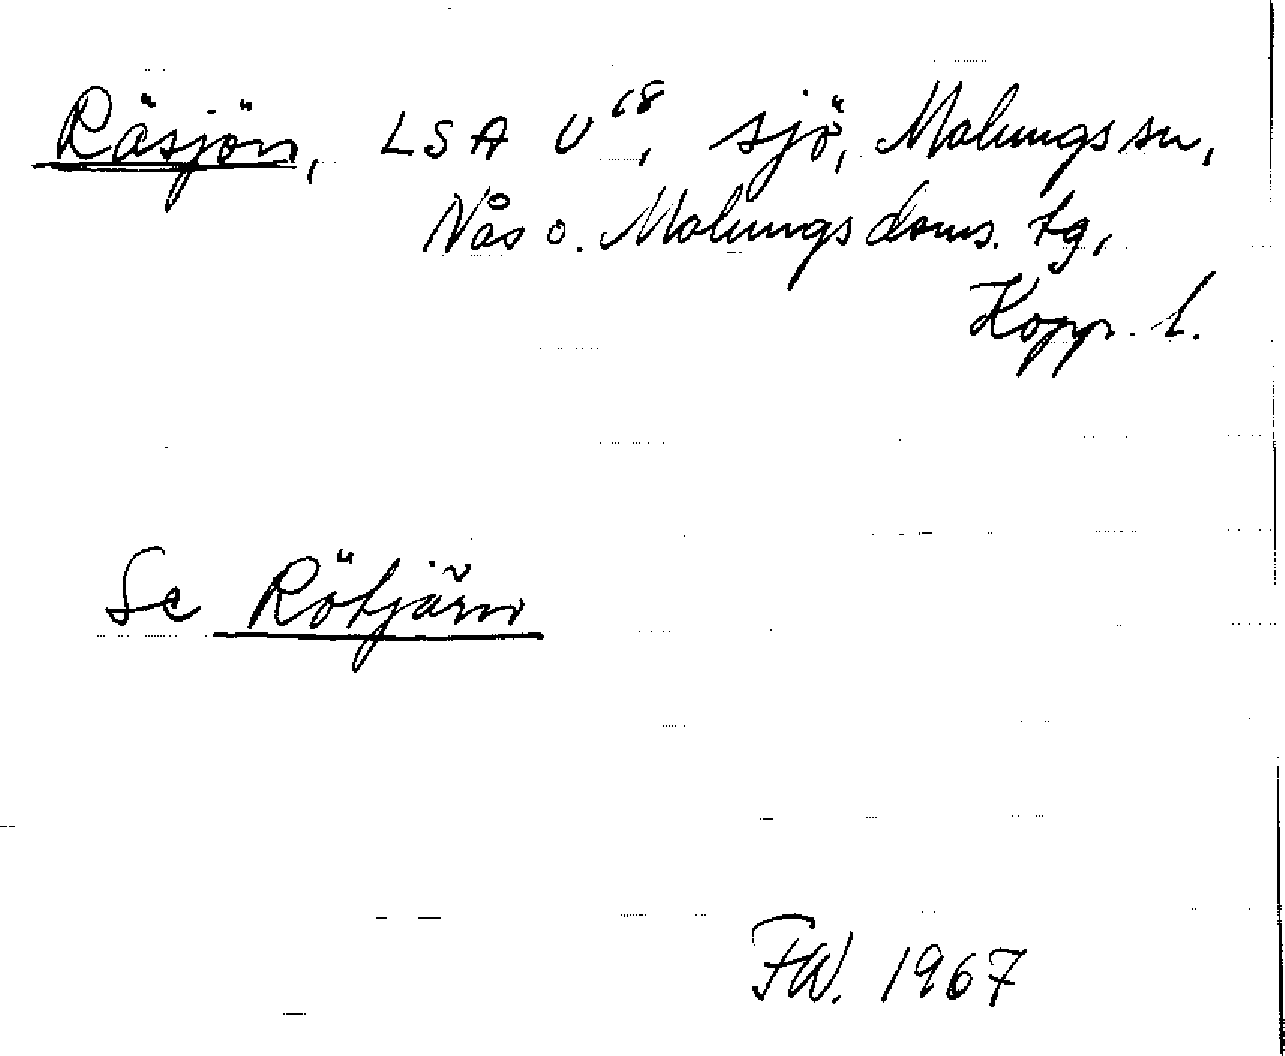 Räsjön, LSA U⁶⁸, sjö, Malungs sn,
Nås o. Malungs doms. tg,
Kopp. l.
Se Rötjärn
FW. 1967